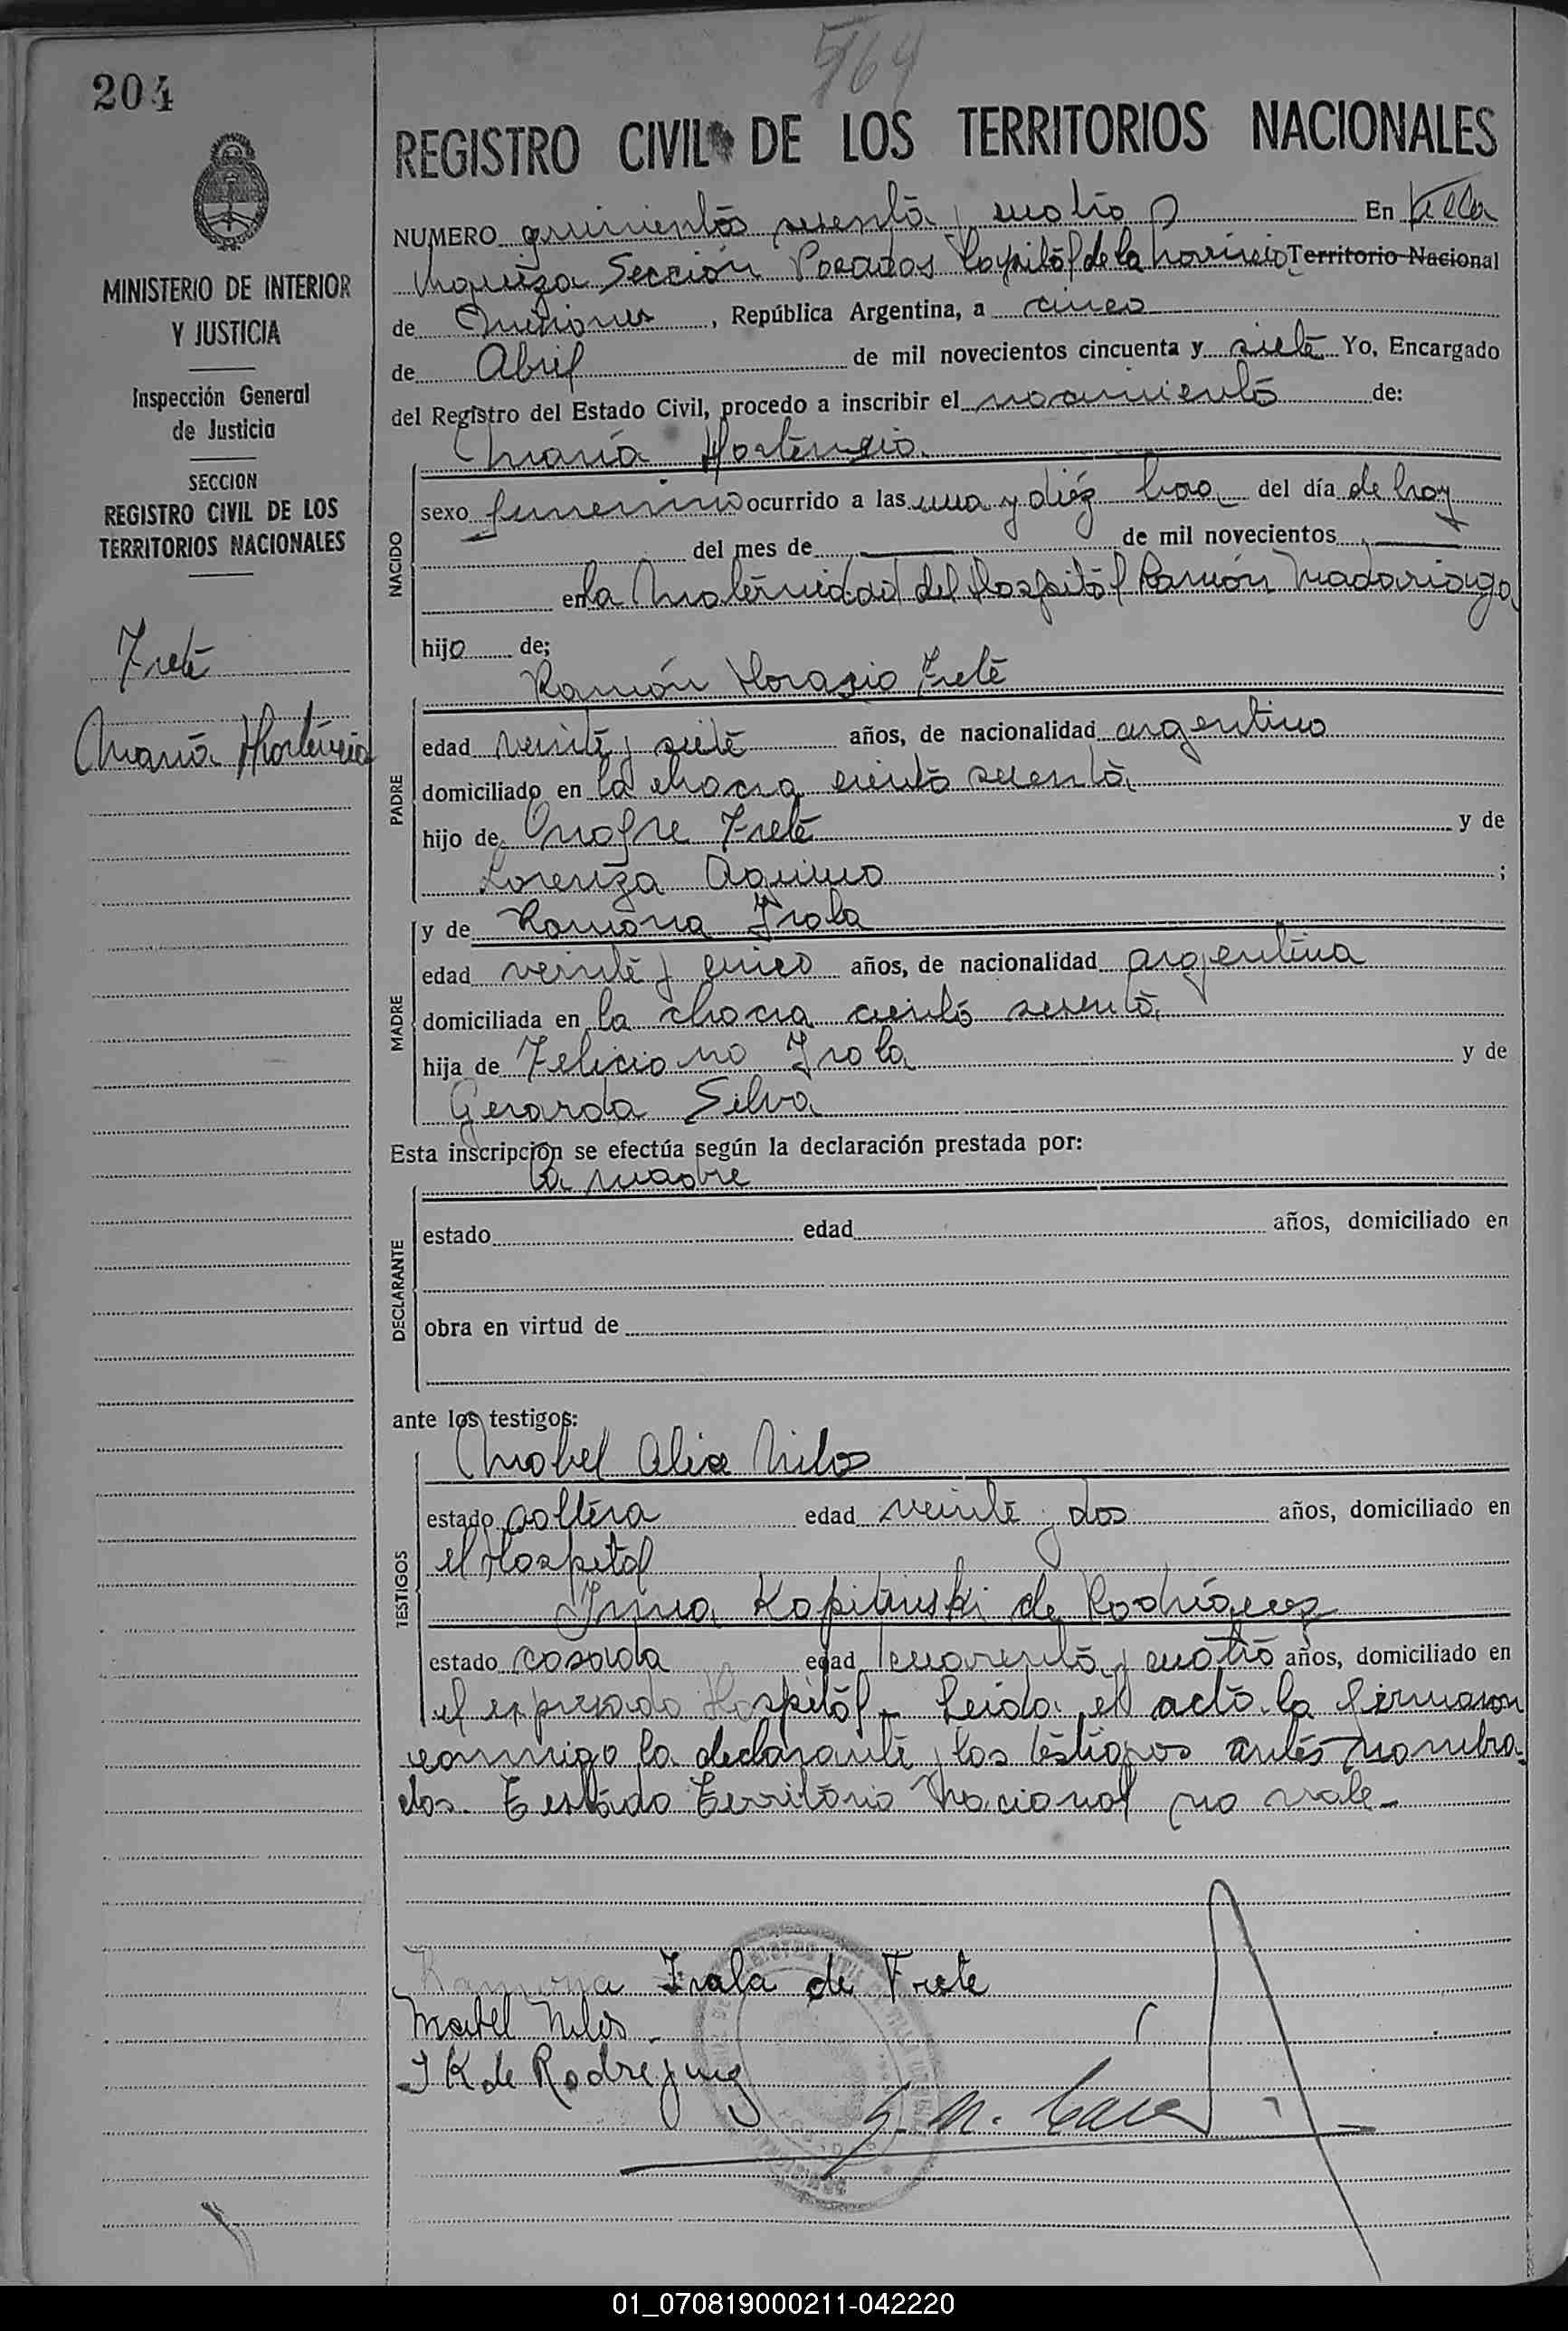 564
204
REGISTRO CIVIL DE LOS TERRITORIOS NACIONALES
MINISTERIO DE INTERIOR
Y JUSTICIA
Inspección General
de Justicia
SECCION
REGISTRO CIVIL DE LOS
TERRITORIOS NACIONALES
Frete
María Hortencia
NUMERO quinientos sesenta y cuatro En Villa
Urquiza Sección Posadas Capital de la Provincia Territorio Nacional
de Misiones, República Argentina, a cinco
de Abril de mil novecientos cincuenta y siete Yo, Encargado
del Registro del Estado Civil, procedo a inscribir el nacimiento de:
María Hortencia
NACIDO
sexo femenino ocurrido a las una y diéz hora del día de hoy
del mes de de mil novecientos
en la Maternidad del Hospital Ramón Madariaga
hija de;
Ramón Horacio Frete
PADRE
edad veinte y siete años, de nacionalidad argentino
domiciliado en la chacra ciento sesenta
hijo de Onofre Frete y de
Lorenza Aquino ;
MADRE
y de Ramona Irala
edad veinte y cinco años, de nacionalidad argentina
domiciliada en la chacra ciento sesenta
hija de Feliciano Irala y de
Gerarda Silva
Esta inscripción se efectúa según la declaración prestada por:
la madre
DECLARANTE
estado edad años, domiciliado en
obra en virtud de
ante los testigos:
Mabel Alice Milos
TESTIGOS
estado soltera edad veinte y dos años, domiciliado en
el Hospital
Irma Kapitunski de Rodríguez
estado casada edad cuarenta y cuatro años, domiciliado en
el expresado Hospital - Leida el acta la firmaron
conmigo la declarante y los testigos antes nombra-
dos. Testado Territorio Nacional no vale -
Ramona Irala de Frete
Mabel Milos
I K de Rodriguez
01_070819000211-042220